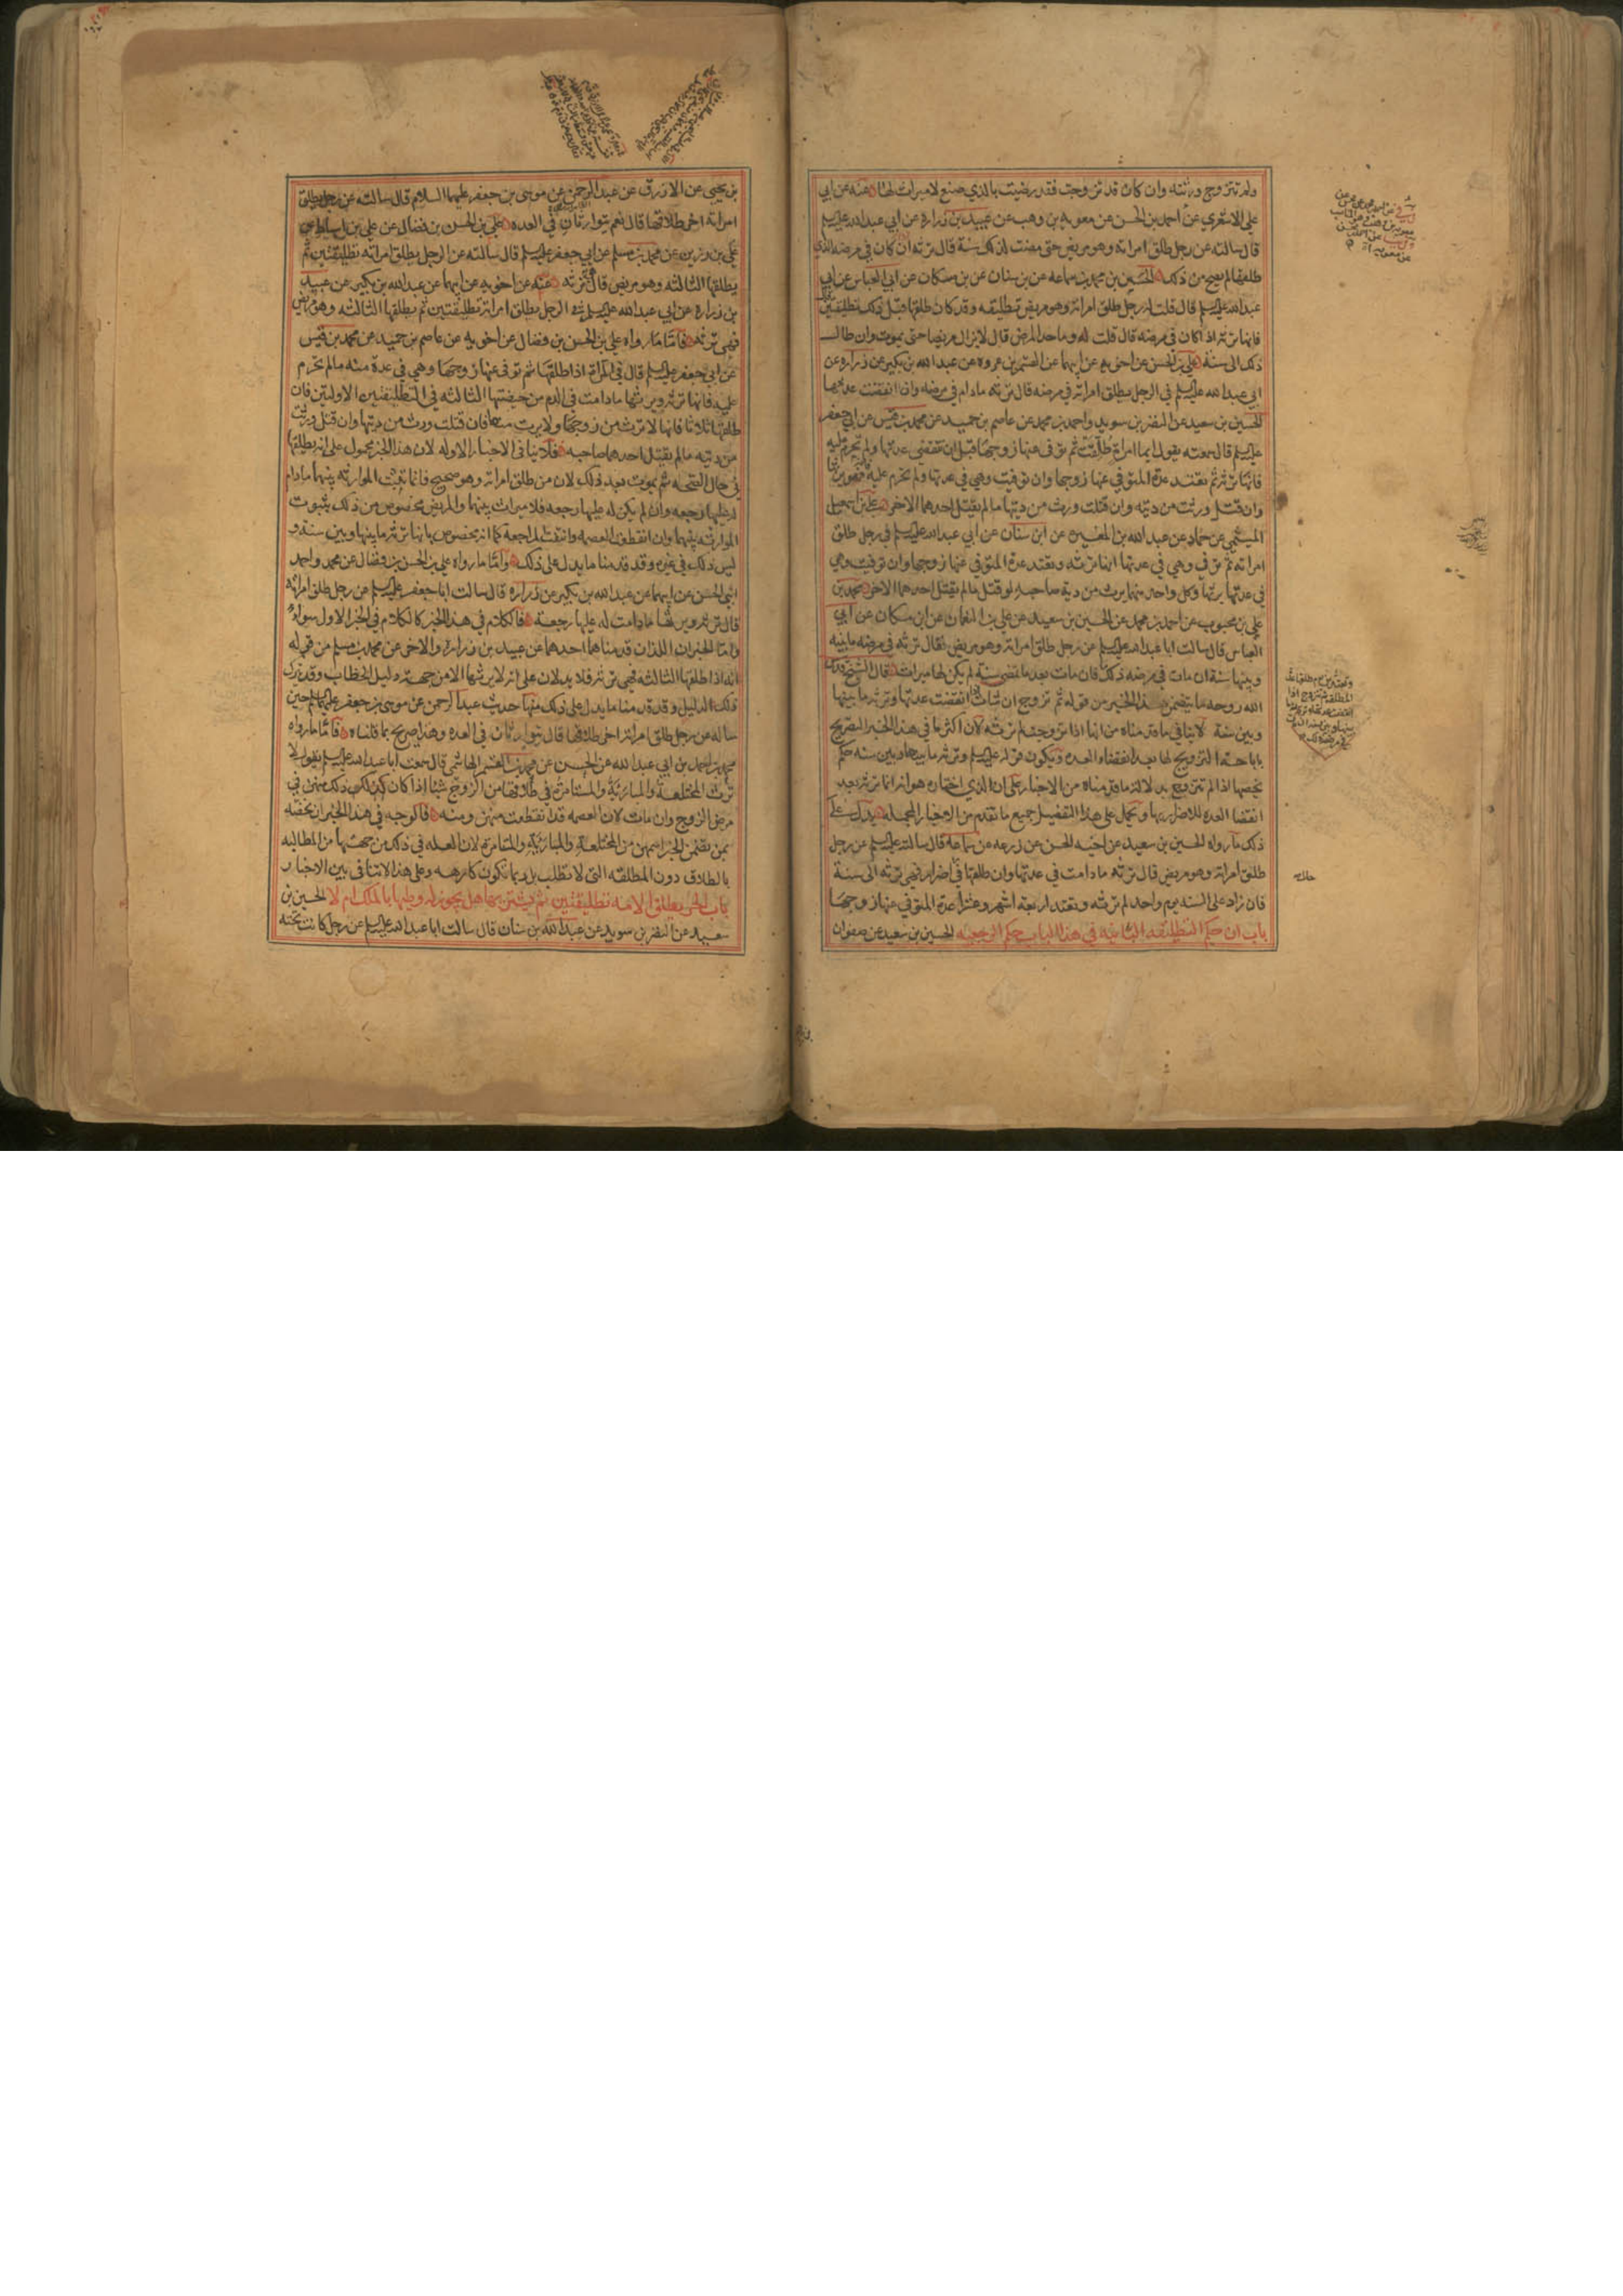 ولم تتزوج ورثته وان كان قد تزوجت فقد رضيت بالذي صنع لا ميراث لها عنه عن ابي
علي الاشعري عن احمد بن الحسن عن معوية بن وهب عن عبيد بن زرارة عن ابي عبد الله عليه السلم
قال سالته عن رجل طلق امراته وهو مريض حتى مضت لذلك سنة قال ترثه ان كان في مرضه الذي
طلقها لم يصح من ذلك الحسين بن محمد بن سماعه عن بن سنان عن بن مسكان عن ابي العباس عن ابي
عبد الله عليه السلم قال قلت له رجل طلق امراته وهو مريض تطليقه وقد كان طلقها قبل ذلك تطليقتين
فانها ترثه اذا كان في مرضه قال قلت له وما حد المرض قال لا يزال مريضا حتى يموت وان طال
ذلك الى سنة علي بن الحسن عن اخويه عن ابيهما عن القسم بن عروه عن عبد الله بن بكير عن زراره عن
ابي عبد الله عليه السلم في الرجل يطلق امراته في مرضه قال ترثه مادام في مرضه وان انقضت عدتها
الحسين بن سعيد عن النضر بن سويد واحمد بن محمد عن عاصم بن حميد عن محمد بن قيس عن ابي جعفر
عليه السلم قال سمعته يقول ايما امراة طلقت ثم توفي عنها زوجها قبل ان تنقضي عدتها ولم تحرم عليه
فانها ترثه ثم تعتد عدة المتوفي عنها زوجها وان توفيت وهي في عدتها ولم تحرم عليه فهو يرثها
وان قتل ورثت من ديته وان قتلت ورث من ديتها ما لم يقتل احدهما الاخر علي بن اسمعيل
الميثمي عن حماد عن عبد الله بن المغيره عن ابن سنان عن ابي عبد الله عليه السلم في رجل طلق
امراته ثم توفي وهي في عدتها انها ترثه وتعتد عدة المتوفي عنها زوجها وان توفيت وهي
في عدتها يرثها وكل واحد منهما يرث من دية صاحبه لو قتل مالم يقتل احدهما الاخر محمد بن
علي بن محبوب عن احمد بن محمد عن الحسين بن سعيد عن علي بن النعمان عن ابن مسكان عن ابي
العباس قال سالت ابا عبد الله عليه السلم عن رجل طلق امراته وهو مريض فقال ترثه في مرضه ما بينه
وبينها سنة ان مات في مرضه ذلك فان مات بعد ما تمضي سنة لم يكن لها ميراث قال الشيخ قدس
الله روحه ما يتضمن هذا الخبر من قوله ثم تزوج ان شاءت اذا انقضت عدتها وترثه ما بينها
وبين سنة لا ينافي ما قدمناه من انها اذا تزوجت لم ترثه لان اكثر ما في هذا الخبر التصريح
باباحة التزويج لها بعد انقضاء العده ويكون قوله عليه السلم وترثه ما بينها وبين سنه حكم
يخصها اذا لم تتزوج بدلالة ما قدمناه من الاخبار على ان الذي اختاره هو انه انما ترثه بعد
انقضا العده للاضرار بها ونحمل على هذا التفصيل جميع ما تقدم من الاخبار المجمله يدل على
ذلك ما رواه الحسين بن سعيد عن اخيه الحسن عن زرعه عن سماعة قال سالته عليه السلم عن رجل
طلق امراته وهو مريض قال ترثه ما دامت في عدتها وان طلقها في اضرار فهي ترثه الى سنة
فان زاد على السنه يوم واحد لم ترثه وتعتد اربعة اشهر وعشرا عدة المتوفي عنها زوجها
باب ان حكم التطليقه الثانيه في هذا الباب حكم الرجعيه الحسين بن سعيد عن صفوان
بن يحيى عن الازرق عن عبد الرحمن عن موسى بن جعفر عليهما السلام قال سالته عن رجل يطلق
امراته اخر طلاقها قال نعم يتوارثان في العده علي بن الحسن بن فضال عن علي بن اسباط عن
علي بن رزين عن محمد بن مسلم عن ابي جعفر عليه السلم قال سالته عن الرجل يطلق امراته تطليقتين ثم
يطلقها الثالثه وهو مريض قال هي ترثه عنه عن اخويه عن ابيهما عن عبد الله بن بكير عن عبيد
بن زراره عن ابي عبد الله عليه السلم في الرجل يطلق امراته تطليقتين ثم يطلقها الثالثه وهو مريض
فهي ترثه فاما ما رواه علي بن الحسن بن فضال عن اخويه عن عاصم بن حميد عن محمد بن قيس
عن ابي جعفر عليه السلم قال في المراة اذا طلقها ثم توفي عنها زوجها وهي في عدة منه ما لم تحرم
عليه فانها ترثه ويرثها ما دامت في الدم من حيضتها الثالثه في التطليقتين الاولتين فان
طلقها ثلاثا فانها لا ترث من زوجها ولا يرث منها فان قتلت ورث من ديتها وان قتل ورثت
من ديته مالم يقتل احدهما صاحبه فلا ينافي الاخبار الاوله لان هذا الخبر محمول على انه يطلقها
في حال الصحه ثم يموت بعد ذلك لان من طلق امراته وهو صحيح فانما تثبت الموارثه بينهما مادام
له عليها رجعه وان لم يكن له عليها رجعه فلا ميراث بينهما والمريض مخصوص من ذلك بثبوت
الموارثه بينهما وان انقطعت العصمه وانتفت المراجعه كما انه مخصوص بانها ترثه ما بينها وبين سنه و
ليس ذلك في غيره وقد قدمنا ما يدل على ذلك واما ما رواه علي بن الحسن بن فضال عن محمد واحمد
ابني الحسن عن ابيهما عن عبد الله بن بكير عن زراره قال سالت ابا جعفر عليه السلم عن رجل طلق امراته
قال ترثه ويرثها مادامت له عليها رجعة فالكلام في هذا الخبر كالكلام في الخبر الاول سواء
واما الخبران اللذان قدمناهما احدهما عن عبيد بن زرارة والاخر عن محمد بن مسلم من قوله
انه اذا طلقها الثالثه فهي ترثه فلا يدلان على انه لا يرثها الا من جهة دليل الخطاب وقد يترك
ذلك الدليل وقد قدمنا ما يدل على ذلك منها حديث عبد الرحمن عن موسى بن جعفر عليه السلم حين
ساله عن رجل طلق امراته اخر طلاقها قال يتوارثان في العده وهذا صريح بما قلناه فاما ما رواه
محمد بن احمد بن ابي عبد الله عن الحسن عن محمد بن القسم الهاشمي قال سمعت ابا عبد الله عليه السلم يقول لا
ترث المختلعة والمبارئة والمستامرة في طلاقها من الزوج شيئا اذا كان ذلك منهن في
مرض الزوج وان مات لان العصمه قد انقطعت منهن ومنه فالوجه في هذا الخبر ان نخصه
بمن تضمن الخبر اسمهن من المختلعة والمبارئة والمستامرة لان العله في ذلك من جهتها من المطالبه
بالطلاق دون المطلقه التي لا تطلب بل ربما تكون كارهه وعلى هذا لا تنافي بين الاخبار
باب الحر يطلق الامه تطليقتين ثم يشتريها هل يجوز له وطيها بالملك ام لا الحسين بن
سعيد عن النضر بن سويد عن عبد الله بن سنان قال سالت ابا عبد الله عليه السلم عن رجل كانت تحته